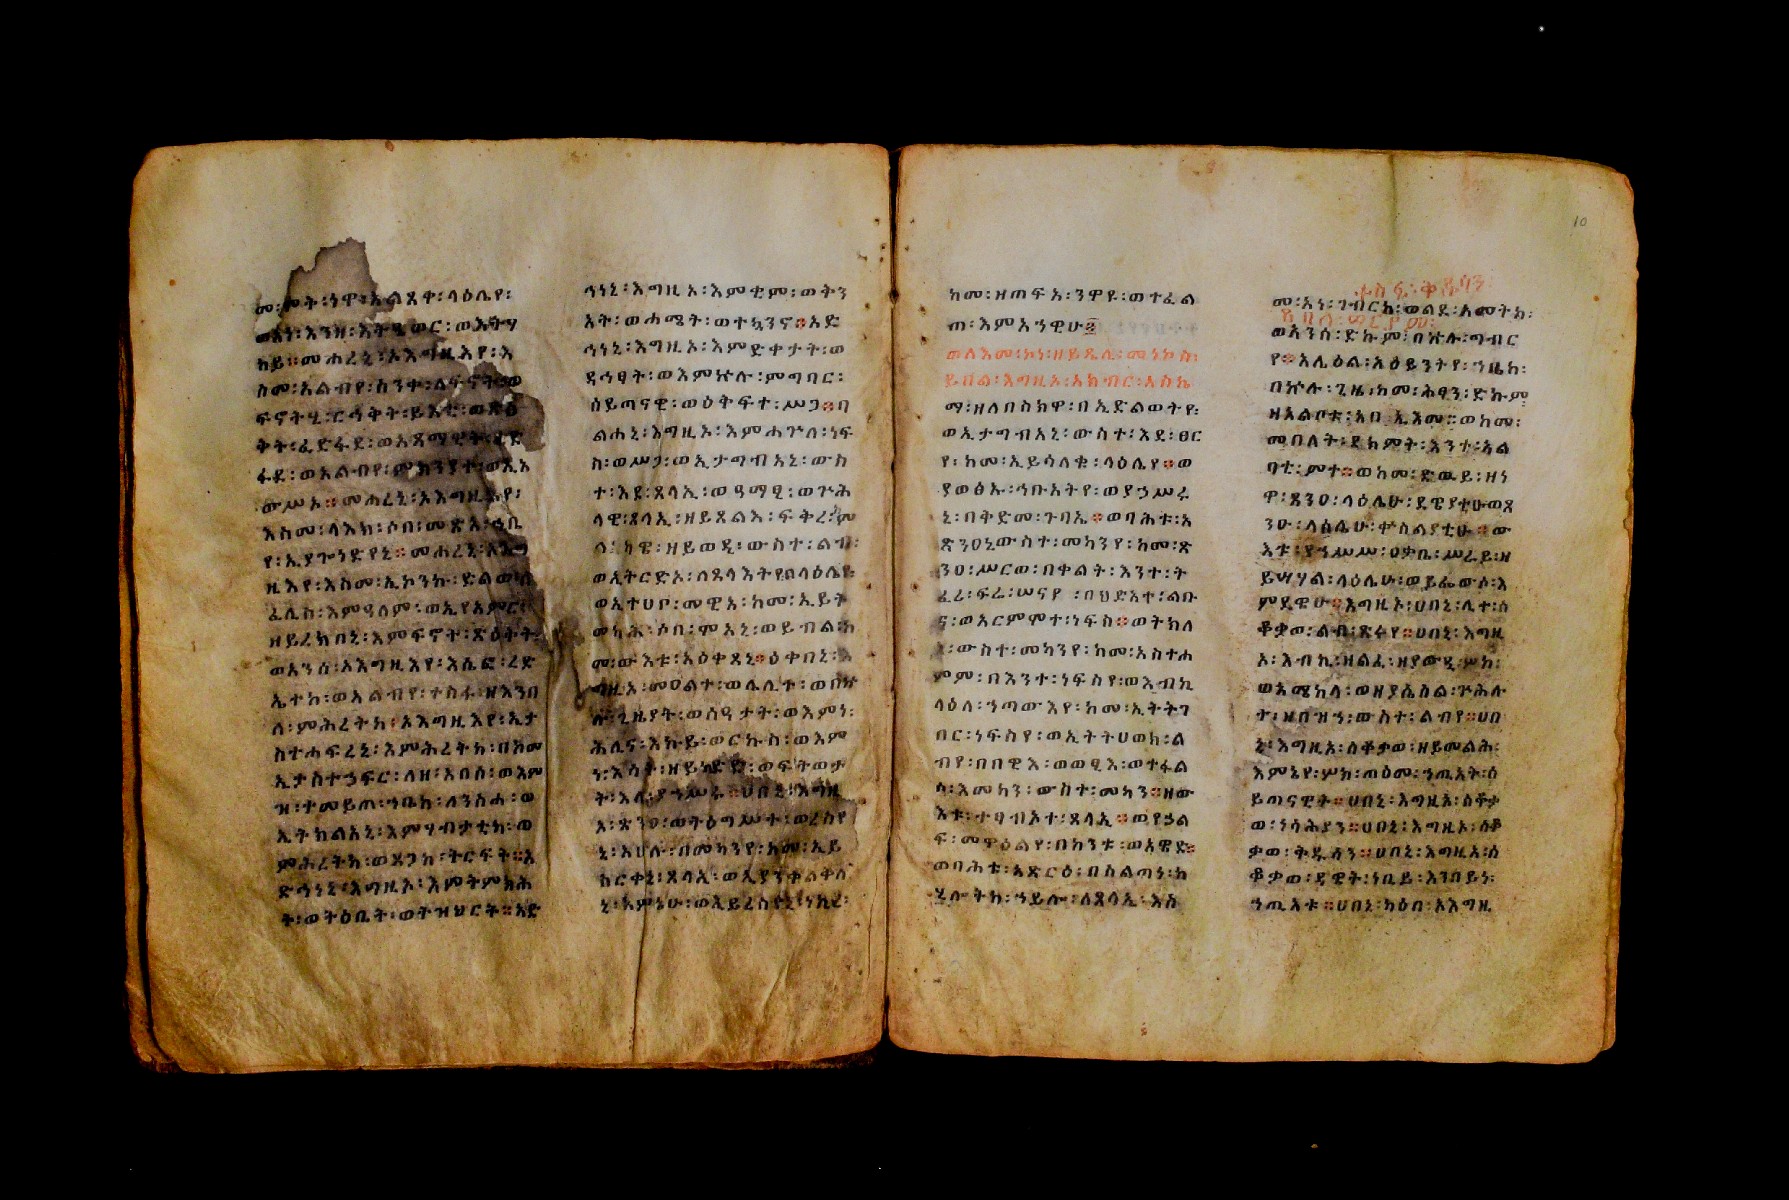 መ፡ሞት፡ነዋ፡አልጸቀ፡ላዕሌየ፡
ወአነ፡እንዘ፡እትዔወር፡ወእትሃ
ከይ፡፡መሐረኒ፡አእግዚእየ፡እ
ስመ፡አልብየ፡ስንቀ፡ለፍኖት፡ወ
ፍኖትሂ፡ርኅቅት፡ይእቲ፡ወጽዕ
ቅት፡ፈድፋደ፡ወአጻማዊት፡ፈድ
ፋደ፡ወአልብየ፡ምክንያተ፡ወኢአ
ውሥኦ፡፡መሐረኒ፡አእግዚእየ፡
እስመ፡ላእክ፡ሶበ፡መጽአ፡ኀቤ
የ፡ኢያጐነድየኒ፡፡መሐረኒ፡አእግ
ዚእየ፡እስመ፡ኢኮንኩ፡ድልወ፡ለ
ፈሊስ፡እምዓለም፡ወኢየአምር፡
ዘይረክበኒ፡እምፍኖት፡ጽዕቅት፡
ወአንሰ፡አእግዚእየ፡እሴፎ፡ረድ
ኤተከ፡ወአልብየ፡ተስፋ፡ዘእንበ
ለ፡ምሕረትከ፡አእግዚእየ፡ኢታ
ስተሐፍረኒ፡እምሕረትከ፡በከመ
ኢታስተኃፍር፡ለዘ፡አበሰ፡ወእም
ዝ፡ተመይጠ፡ኀቤከ፡ለንስሐ፡ወ
ኢትክልአኒ፡እምሃብታቲከ፡ወ
ምሕረትከ፡ወጸጋከ፡ትርፍት፡፡አ
ድኅነኒ፡እግዚኦ፡እምትምክሕ
ት፡ወትዕቢት፡ወትዝህርት፡፡አድ
ኅነኒ፡እግዚኦ፡እምቂም፡ወቅን
አት፡ወሐሜት፡ወተኳንኖ፡፡አድ
ኅነኒ፡እግዚኦ፡እምድቀታት፡ወ
ዳኅፃት፡ወእምኵሉ፡ምግባር፡
ሰይጣናዊ፡ወዕቅፍተ፡ሥጋ፡፡ባ
ልሐኒ፡እግዚኦ፡እምሐጕለ፡ነፍ
ስ፡ወሥጋ፡ወኢታግብአኒ፡ውስ
ተ፡እደ፡ጸላኢ፡ወዓማፂ፡ወጕሕ
ላዊ፡ጸላኢ፡ዘይጸልእ፡ፍቅረ፡ም
ወኢትርድኦ፡ለጸላእትየ፡በላዕሌየ፡
ወኢተሀቦ፡መዊአ፡ከመ፡ኢይት
ወካሕ፡ሶበ፡ሞአኒ፡ወይብል፡ከ
መ፡ውእቱ፡አዕቀጸኒ፡፡ዕቀበኒ፡እ
ግዚኦ፡መዐልተ፡ወሌሊተ፡ወበኵ
ሉ፡ጊዜያት፡ወሰዓታት፡ወእምነ፡
ሕሊና፡እኩይ፡ወርኩስ፡ወእም
ኒ፡እምኔሁ፡ወኢይረስየኒ፡ነኪረ፡
ከመ፡ዘጠፍአ፡ንዋዩ፡ወተፈል
ጠ፡እምአኀዊሁ፡፡
ወለእመ፡ኮነ፡ዘይጼሊ፡መነኮስ፡
ይበል፡እግዚኦ፡አክብር፡አስኬ
ማ፡ዘለበስክዋ፡በኢድልወትየ፡
ወኢታግብአኒ፡ውስተ፡እደ፡ፀር
የ፡ከመ፡ኢይሳለቁ፡ላዕሌየ፡፡ወ
ያወፅኡ፡ኀቡአትየ፡ወያኃሥሩ
ኒ፡በቅድመ፡ጉባኤ፡፡ወባሕቱ፡አ
ጽንዐኒ፡ውስተ፡መካንየ፡ከመ፡ጽ
ንዐ፡ሥርወ፡በቀልት፡እንተ፡ት
ፈሪ፡ፍሬ፡ሠናየ፡በህድአተ፡ልቡ
ና፡ወአርምሞተ፡ነፍስ፡፡ወትክለ
ኒ፡ውስተ፡መካንየ፡ከመ፡አስተሐ
ምም፡በእንተ፡ነፍስየ፡ወእብኪ
ላዕለ፡ኀጣውእየ፡ከመ፡ኢትትገ
በር፡ነፍስየ፡ወኢትትሀወክ፡ል
ብየ፡በበዊእ፡ወወፂእ፡ወተፋል
ሶ፡እመካን፡ውስተ፡መካን፡፡ዘው
እቱ፡ተፃብኦተ፡ጸላኢ፡፡ወየኃል
ፍ፡መዋዕልየ፡በከንቱ፡ወአዌድ፡፡
ወባሕቱ፡አጽርዕ፡በስልጣነ፡ከ
ሂሎትከ፡ኀይሎ፡ለጸላኢ፡እስ
መ፡አነ፡ገብርከ፡ወልደ፡አመትከ፡
ወአንሰ፡ድኩም፡በኵሉ፡ግብር
የ፡፡አሌዕል፡አዕይንትየ፡ኀቤከ፡
በኵሉ፡ጊዜ፡ከመ፡ሕፃን፡ድኩም
ዘአልቦቱ፡አበ፡ኢእመ፡፡ወከመ፡
መበለት፡ደክምት፡እንተ፡አል
ባቲ፡ምተ፡፡ወከመ፡ድዉይ፡ዘነ
ዋ፡ጸንዐ፡ላዕሌሁ፡ደዌያቲሁ፡ወጸ
ንዑ፡ላዕሌሁ፡ቍስልያቲሁ፡፡ው
እቱ፡የኀሥሥ፡ዐቃቤ፡ሥራይ፡ዘ
ይሣሃል፡ላዕሌሁ፡ወይፌውሶ፡እ
ምደዌሁ፡፡እግዚኦ፡ሀበኒ፡ሊተ፡ሰ
ቆቃወ፡ልብ፡ጽሩየ፡፡ሀበኒ፡እግዚ
ኦ፡እብኪ፡ዘልፈ፡ዘያውዒ፡ሦከ፡
ወአሜከላ፡ወዘያሴስል፡ጕሕሉ
ተ፡ዘበዝኀ፡ውስተ፡ልብየ፡፡ሀበ
ኒ፡እግዚኦ፡ሰቆቃወ፡ዘይመልሕ፡
እምኔየ፡ሦከ፡ጠዕመ፡ኀጢአት፡ሰ
ይጣናዊት፡፡ሀበኒ፡እግዚኦ፡ሰቆቃ
ወ፡ነሳሕያን፡፡ሀበኒ፡እግዚኦ፡ሰቆ
ቃወ፡ቅዱሳን፡፡ሀበኒ፡እግዚኦ፡ሰ
ቆቃወ፡ዳዊት፡ነቢይ፡እንበይነ፡
ኀጢአቱ፡፡ሀበኒ፡ካዕበ፡አእግዚ
10